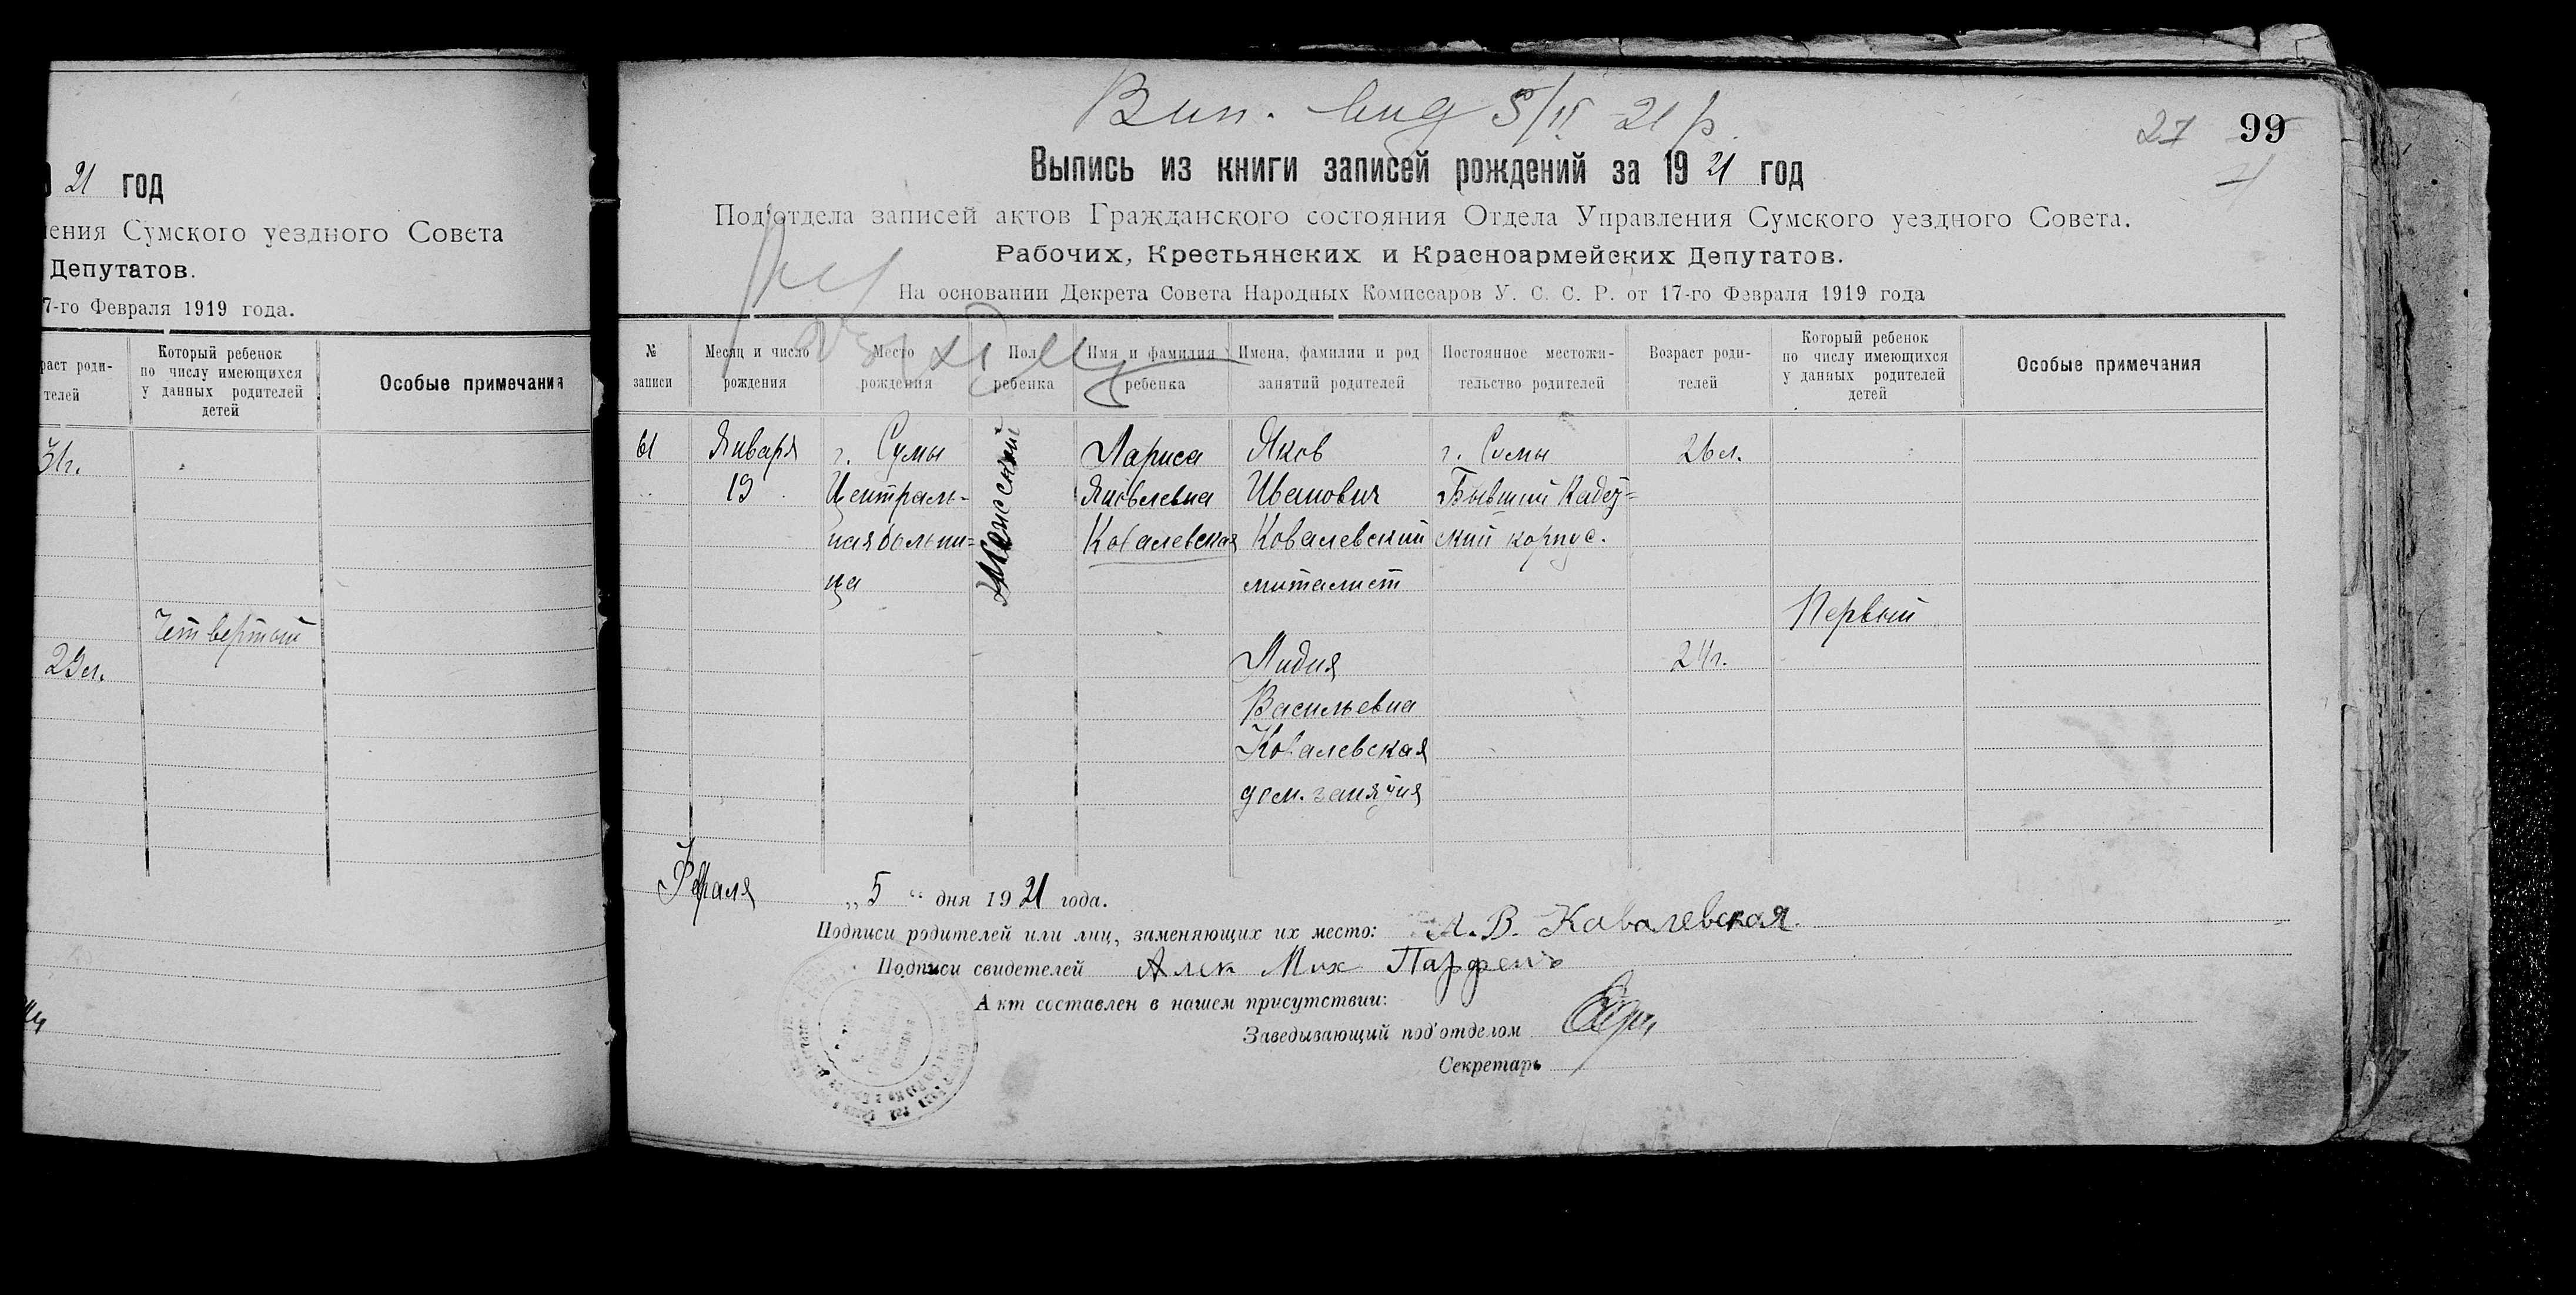 21 год
ения Сумского уездного Совета
Депутатов.
7-го Февраля 1919 года.
раст роди-
телей
Который ребенок
по числу имеющихся
у данных родителей
детей
Особые примечания
31г.
Четвертый
29л.
Вип. вид 5/II 21 р.
27 99
Выпись из книги записей рождений за 1921 год
Под'отдела записей актов Гражданского состояния Отдела Управления Сумского уездного Совета.
Рабочих, Крестьянских и Красноармейских Депутатов.
На основании Декрета Совета Народных Комиссаров У. С. С. Р. от 17-го Февраля 1919 года
№
записи
Месяц и число
рождения
Место
рождения
Пол
ребенка
Имя и фамилия
ребенка
Имена, фамилии и род
занятий родителей
Постоянное местожи-
тельство родителей
Возраст роди-
телей
Который ребенок
по числу имеющихся
у данных родителей
детей
Особые примечания
61
Января
19
г. Сумы
Централь-
ная больни=
ца
Женский
Лариса
Яковлевна
Ковалевская
Яков
Иванович
Ковалевский
г. Сумы
Бывший Кадет=
ский корпус.
26л.
Первый
Лидия
Васильевна
Ковалевская
дом. занятия
24г.
Февраля „5“ дня 1921 года.
Подписи родителей или лиц, заменяющих их место: Л. В. Ковалевская.
Подписи свидетелей Алек Мих
Акт составлен в нашем присутствии:
Заведывающий под'отделом
Секретарь